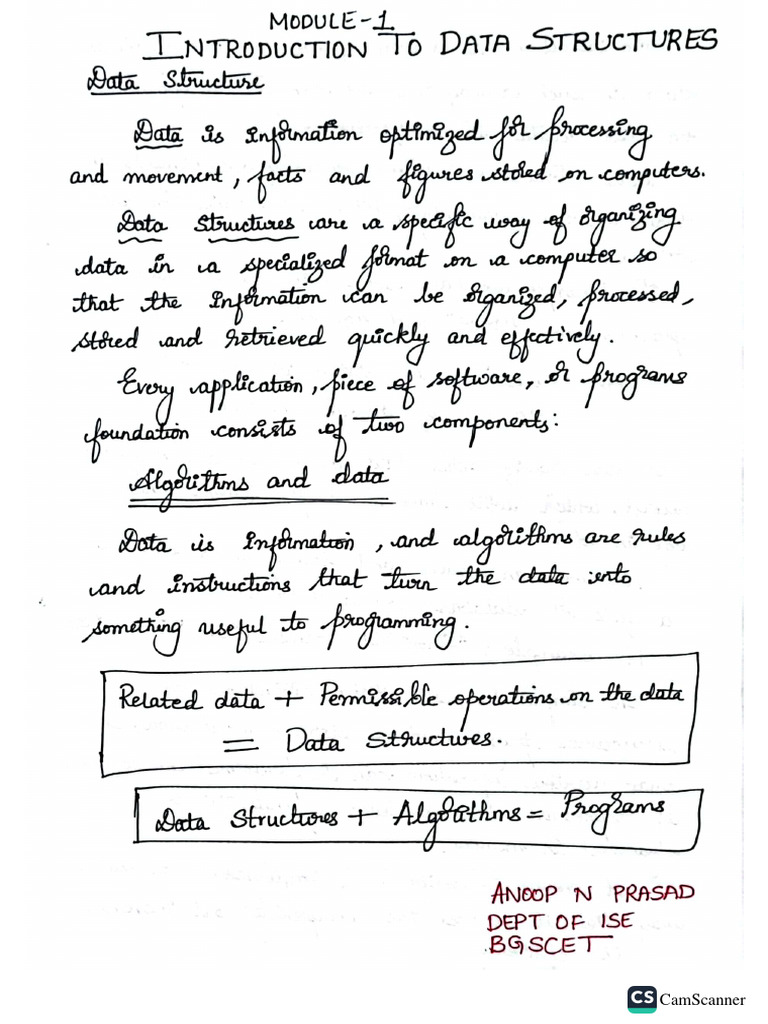 MODULE-1
INTRODUCTION TO DATA STRUCTURES
Data Structure
Data is information optimized for processing
and movement, facts and figures stored on computers.
Data Structures are a specific way of organizing
data in a specialized format on a computer so
that the information can be organized, processed,
stored and retrieved quickly and effectively.
Every application, piece of software, or programs
foundation consists of two components:
Algorithms and data
Data is information, and algorithms are rules
and instructions that turn the data into
something useful to programming.
Related data + Permissible operations on the data
= Data Structures.
Data Structures + Algorithms = Programs
ANOOP N PRASAD
DEPT OF ISE
BGSCET
CS CamScanner